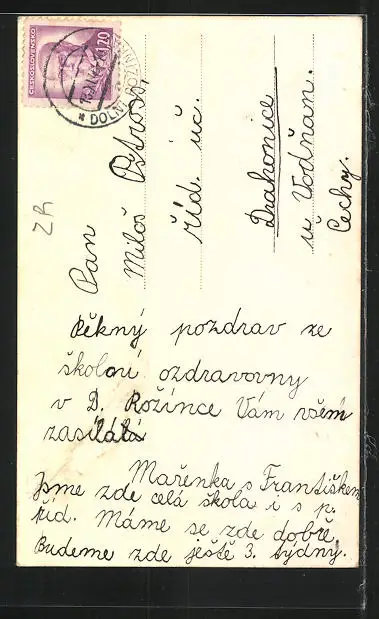 ČESKOSLOVENSKO
1.20
* DOLNÍ
Pan
Miloš
říd. uč.
Drahonice
u Vodňan.
Čechy.
ZR
Pěkný pozdrav ze
školní ozdravovny
v D. Rožínce Vám všem
zasílá
Mařenka s Františkem
Jsme zde celá škola i s p.
říd. Máme se zde dobře.
Budeme zde ještě 3. týdny.